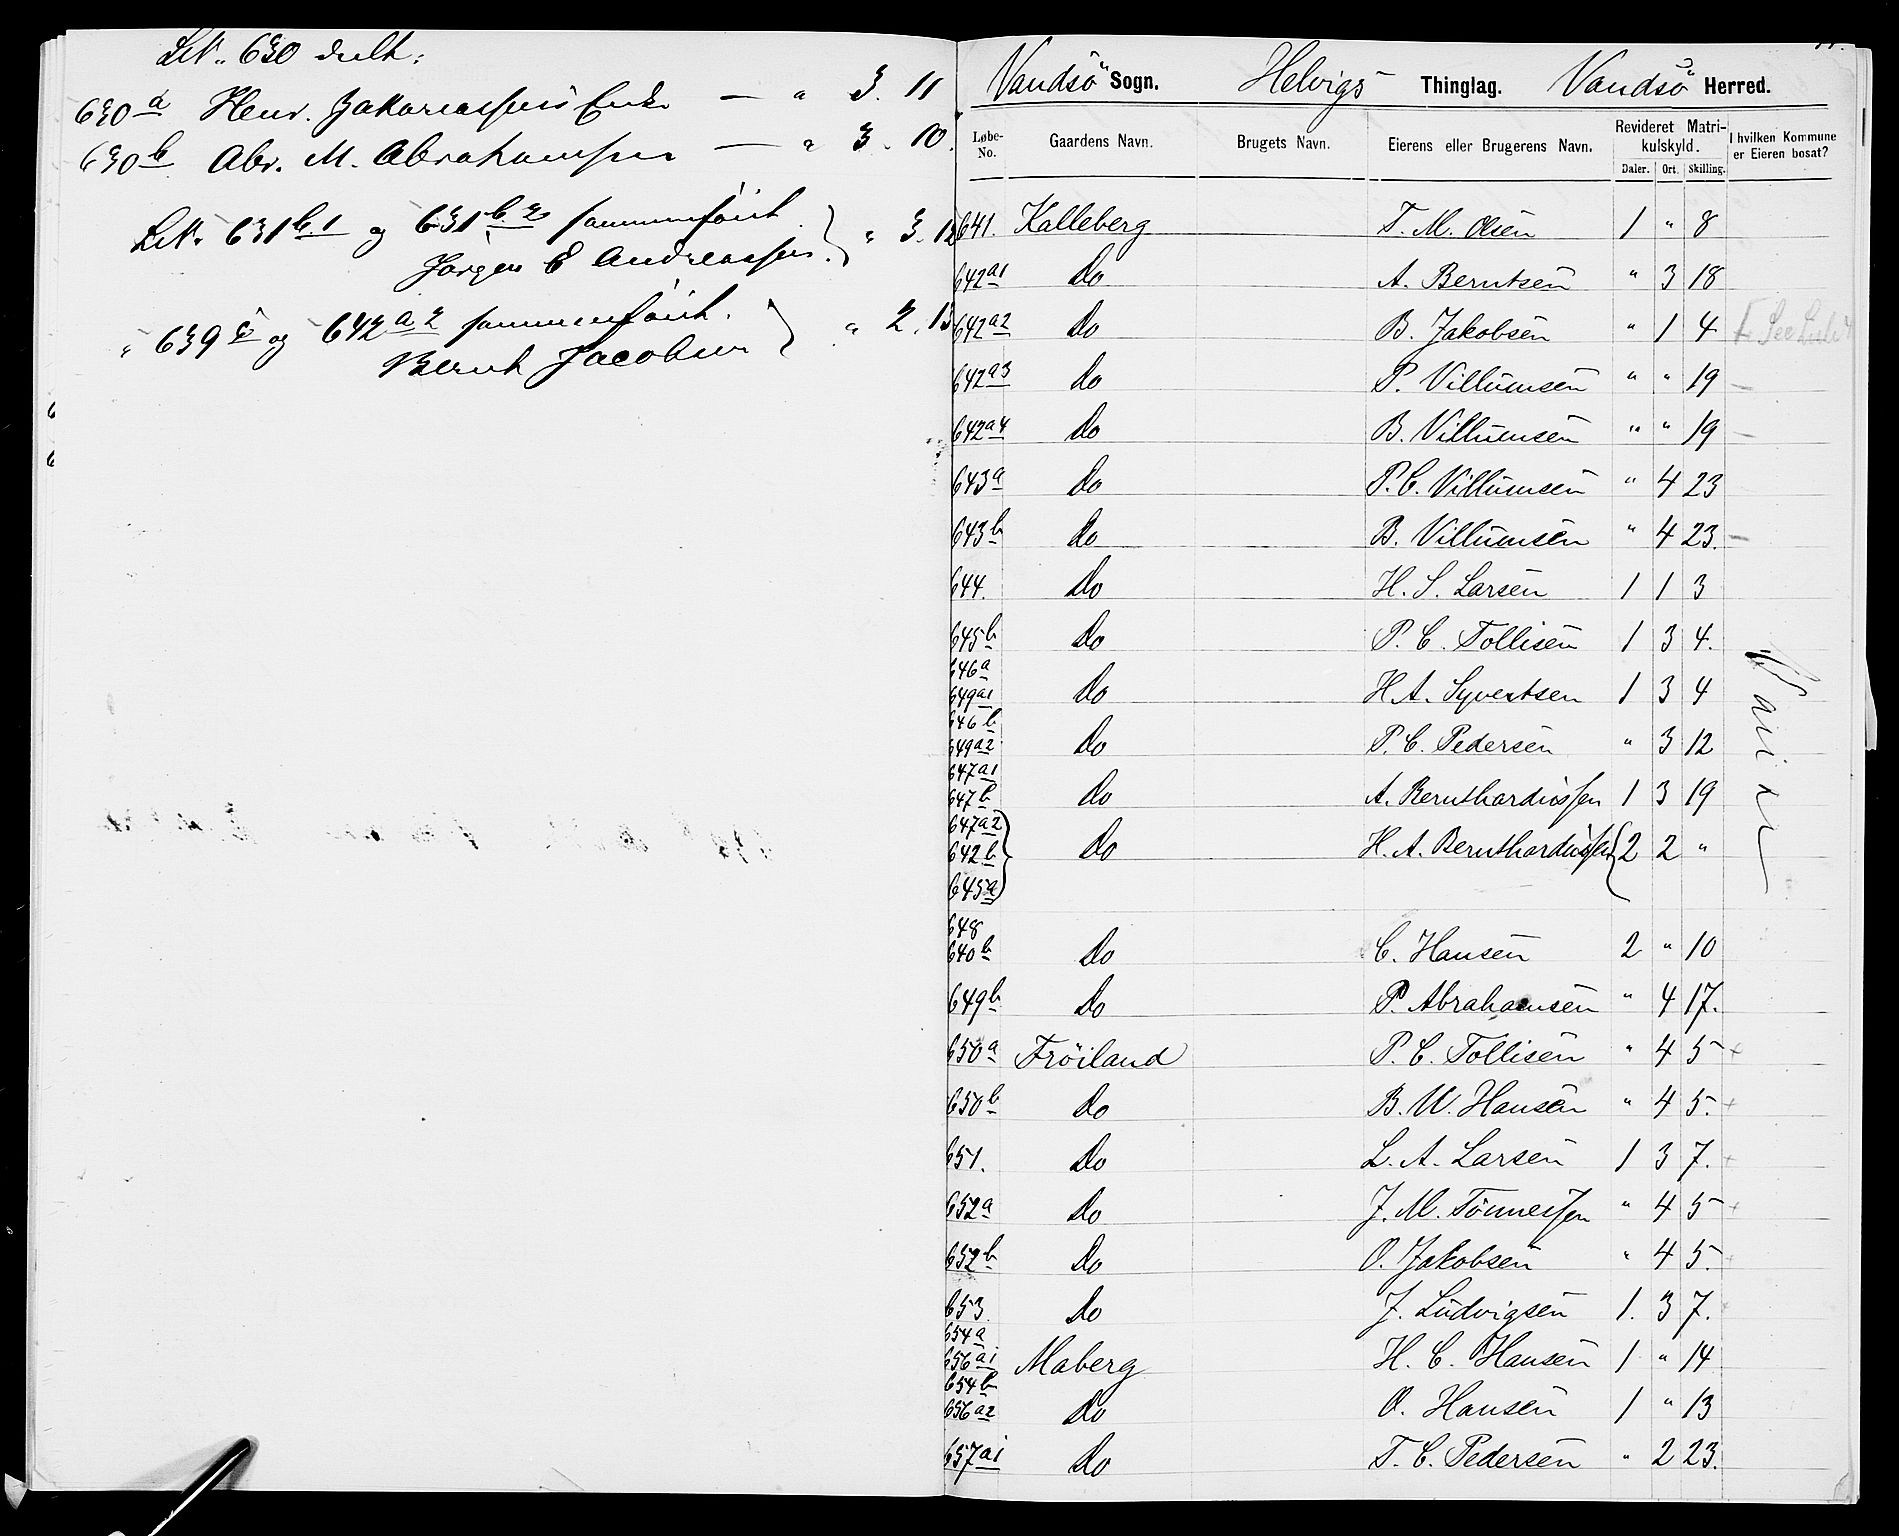 LN. 630 delt:
630a Henr. Zakariassens Enke — " 3. 11
630b Abr. M. Abrahamsen — " 3. 10.
LN. 631b.1 og 631b.2 sammenføiet } " 3. 12
Jørgen E Andreassen.
" 639c og 642a2 sammenføiet. } " 2. 13
Bernt Jacobsen
Vandsö Sogn. Helvigs Thinglag. Vandsö Herred.
Løbe-No. Gaardens Navn. Brugets Navn. Eierens eller Brugerens Navn. Revideret Matrikulskyld. I hvilken Kommune er Eieren bosat?
Daler. Ort. Skilling.
641. Kalleberg T. M. Olsen 1 " 8
642a1 Do A. Berntsen " 3 18
642a2 Do B. Jakobsen " 1 4
642a3 Do P. Villumsen " " 19 –
642a4 Do B. Villumsen " " 19 –
643a Do P. C. Villumsen " 4 23
643b Do B. Villumsen " 4 23. –
644. Do H. S. Larsen 1 1 3
645b Do P. C. Tollisen 1 3 4.
646a
649a1 Do H. A. Syvertsen 1 3 4
646b
649a2 Do P. C. Pedersen " 3 12
647a1
647b Do A. Bernthardussen 1 3 19
647a2
642b Do H. A. Bernthardussen 2 2 "
645a
648
640b Do C. Hansen 2 " 10
649b Do P. Abrahamsen " 4 17.
650a Fröiland P. C. Tollisen " 4 5 +
650b Do B. W. Hansen " 4 5. +
651. Do L. A. Larsen 1 3 7. +
652a Do J. M. Tönnessen " 4 5 +
652b Do O. Jakobsen " 4 5.
653. Do J. Ludvigsen 1. 3 7.
654a
656a1 Maberg H. C. Hansen 1 " 14
654b
656a2 Do O. Hansen 1 " 13
657a1 Do T. C. Pedersen " 2 23.